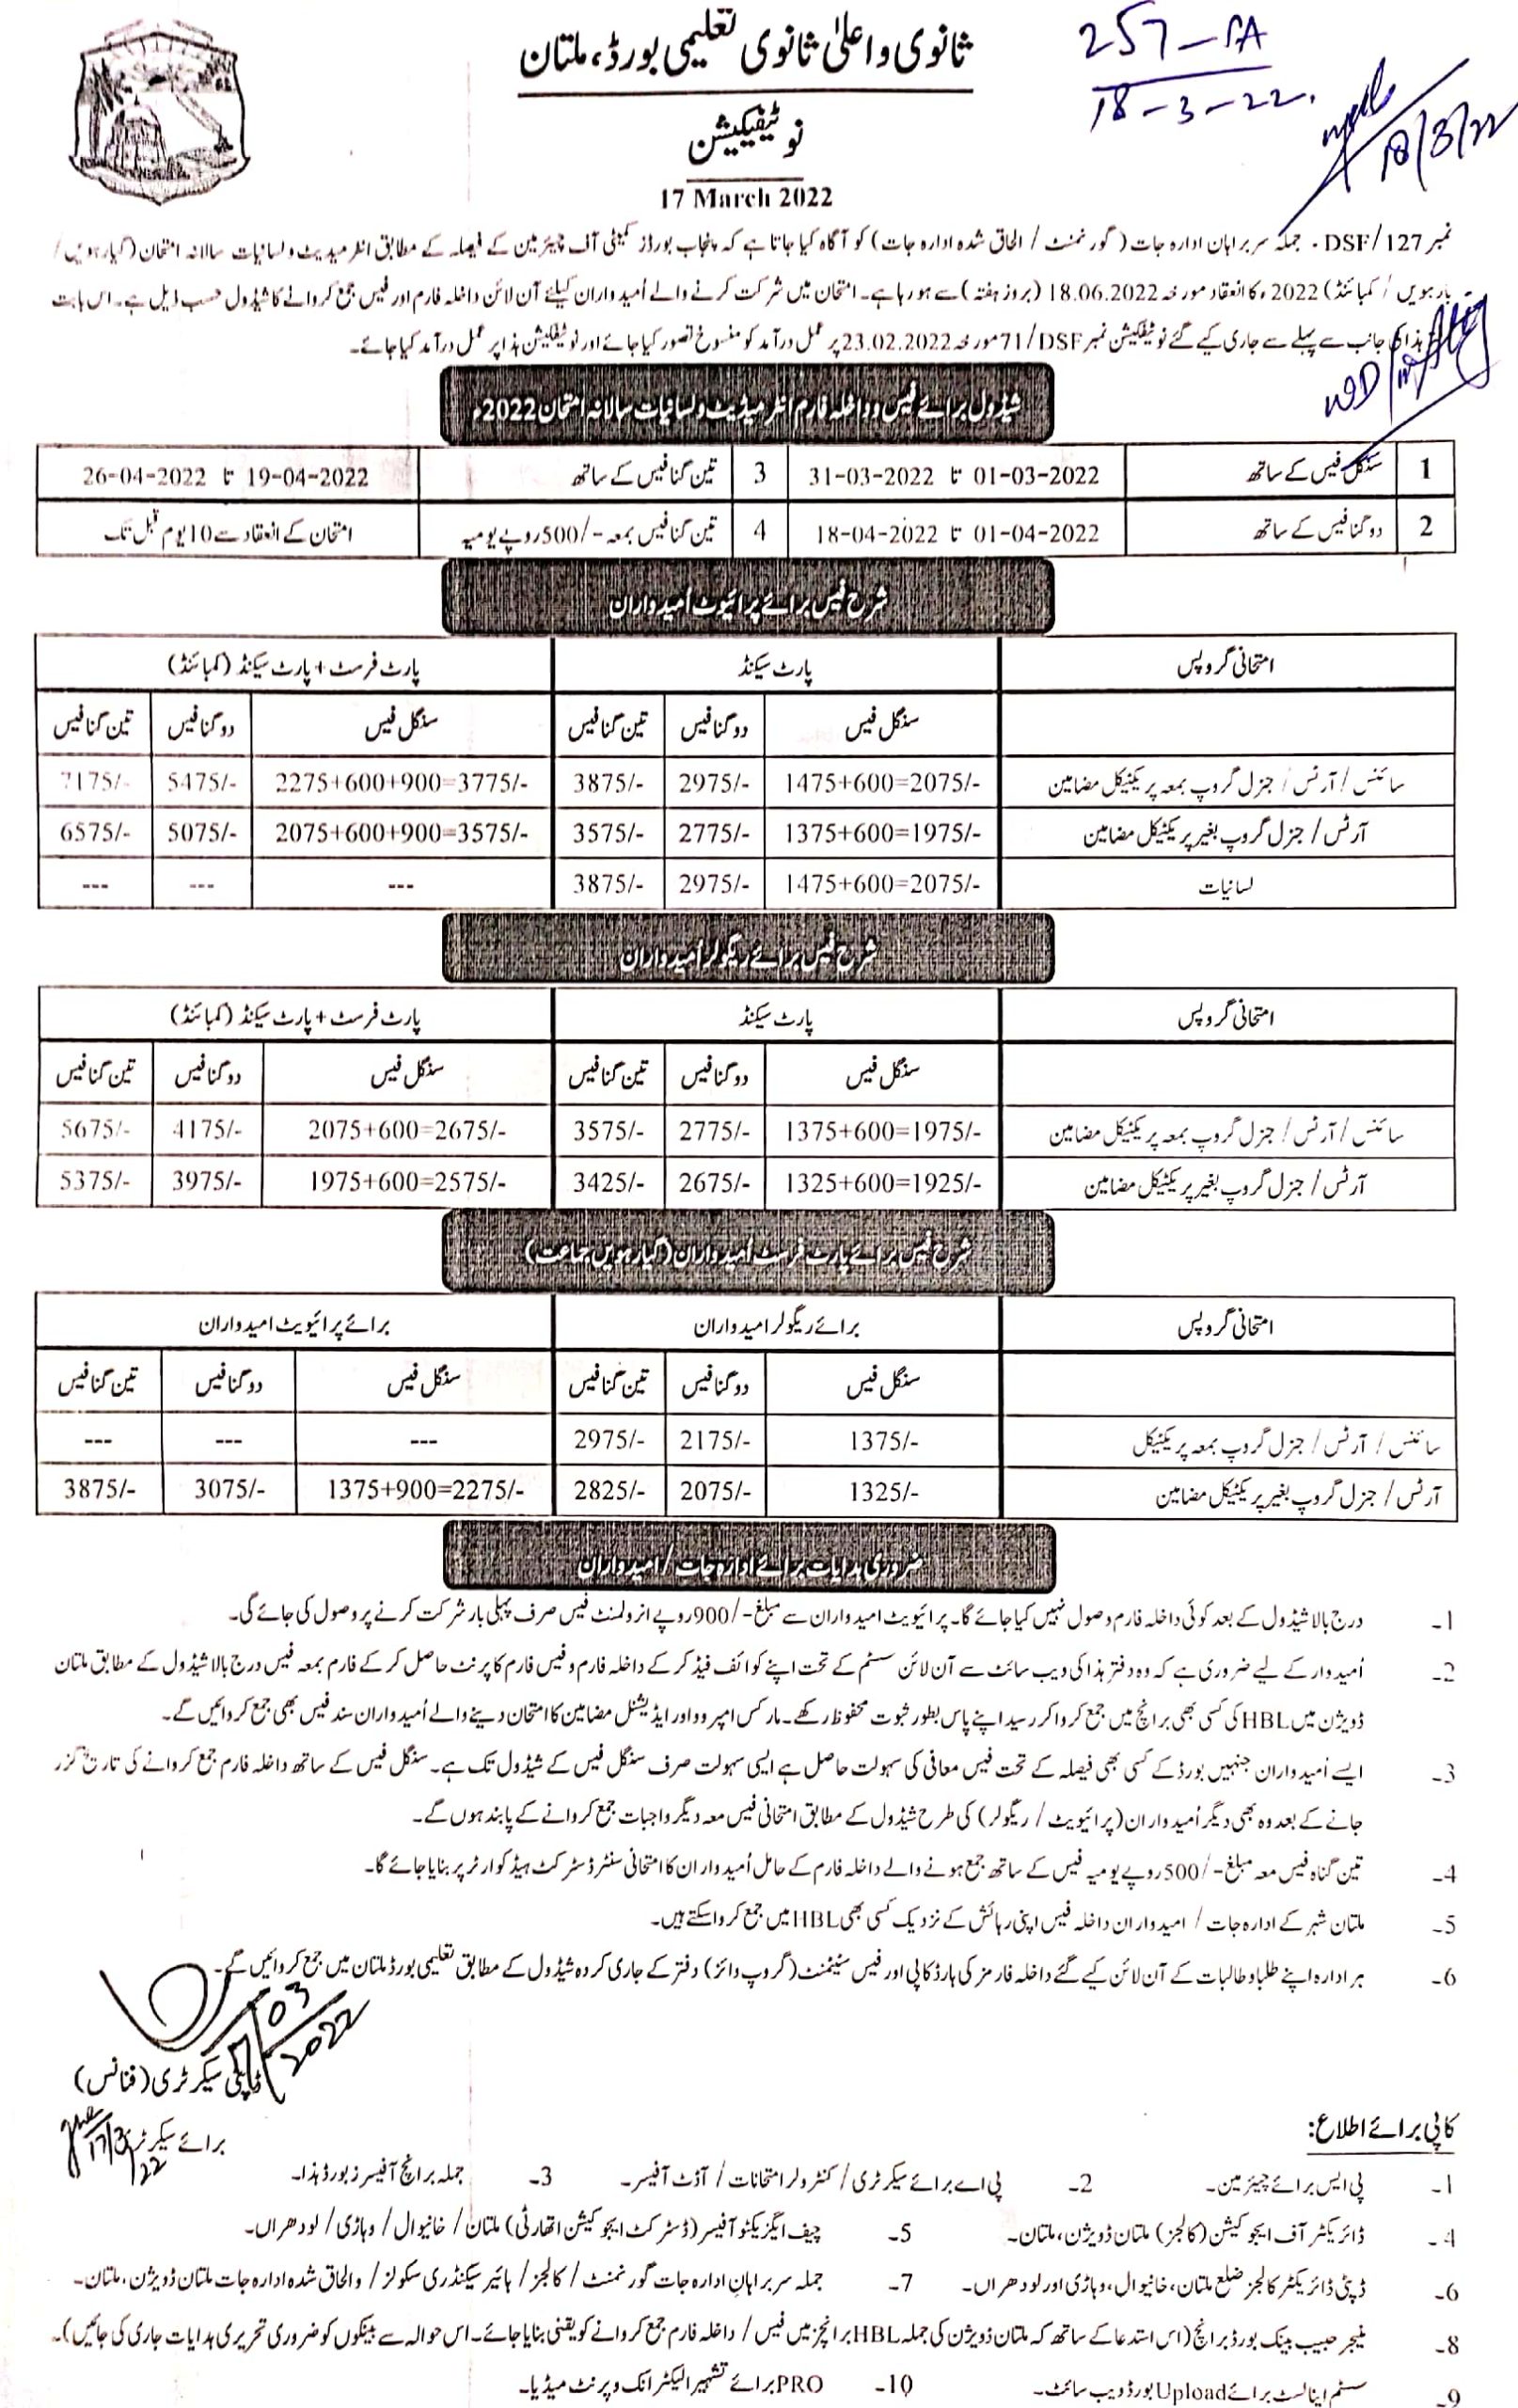 ثانوی و اعلیٰ ثانوی تعلیمی بورڈ، ملتان
257-PA
18-3-22.
نوٹیفیکیشن
18/3/22
17 March 2022
نمبر 127/DSF ۔ جملہ سربراہان ادارہ جات (گورنمنٹ / الحاق شدہ ادارہ جات) کو آگاہ کیا جاتا ہے کہ پنجاب بورڈز کمیٹی آف چیئرمین کے فیصلہ کے مطابق انٹرمیڈیٹ و لسانیات سالانہ امتحان (گیارہویں /
بارہویں / کمبائنڈ) 2022ء کا انعقاد مورخہ 18.06.2022 (بروز ہفتہ) سے ہو رہا ہے۔ امتحان میں شرکت کرنے والے اُمیدواران کیلئے آن لائن داخلہ فارم اور فیس جمع کروانے کا شیڈول حسب ذیل ہے۔ اس بابت
ہذا کی جانب سے پہلے سے جاری کیے گئے نوٹیفکیشن نمبر 71/DSF مورخہ 23.02.2022 پر عمل درآمد کو منسوخ تصور کیا جائے اور نوٹیفکیشن ہذا پر عمل درآمد کیا جائے۔
شیڈول برائے فیس و داخلہ فارم انٹرمیڈیٹ و لسانیات سالانہ امتحان 2022ء
1 سنگل فیس کے ساتھ 01-03-2022 تا 31-03-2022 3 تین گنا فیس کے ساتھ 19-04-2022 تا 26-04-2022
2 دو گنا فیس کے ساتھ 01-04-2022 تا 18-04-2022 4 تین گنا فیس بمعہ -/500 روپے یومیہ امتحان کے انعقاد سے 10 یوم قبل تک
شرح فیس برائے پرائیوٹ اُمیدواران
امتحانی گروپس پارٹ سیکنڈ پارٹ فرسٹ + پارٹ سیکنڈ (کمبائنڈ)
سنگل فیس دو گنا فیس تین گنا فیس سنگل فیس دو گنا فیس تین گنا فیس
سائنس / آرٹس / جنرل گروپ بمعہ پریکٹیکل مضامین 1475+600=2075/- 2975/- 3875/- 2275+600+900=3775/- 5475/- 7175/-
آرٹس / جنرل گروپ بغیر پریکٹیکل مضامین 1375+600=1975/- 2775/- 3575/- 2075+600+900=3575/- 5075/- 6575/-
لسانیات 1475+600=2075/- 2975/- 3875/- --- --- ---
شرح فیس برائے ریگولر امیدواران
امتحانی گروپس پارٹ سیکنڈ پارٹ فرسٹ + پارٹ سیکنڈ (کمبائنڈ)
سنگل فیس دو گنا فیس تین گنا فیس سنگل فیس دو گنا فیس تین گنا فیس
سائنس / آرٹس / جنرل گروپ بمعہ پریکٹیکل مضامین 1375+600=1975/- 2775/- 3575/- 2075+600=2675/- 4175/- 5675/-
آرٹس / جنرل گروپ بغیر پریکٹیکل مضامین 1325+600=1925/- 2675/- 3425/- 1975+600=2575/- 3975/- 5375/-
شرح فیس برائے پارٹ فرسٹ اُمیدواران (گیارہویں جماعت)
امتحانی گروپس برائے ریگولر امیدواران برائے پرائیویٹ امیدواران
سنگل فیس دو گنا فیس تین گنا فیس سنگل فیس دو گنا فیس تین گنا فیس
سائنس / آرٹس / جنرل گروپ بمعہ پریکٹیکل 1375/- 2175/- 2975/- --- --- ---
آرٹس / جنرل گروپ بغیر پریکٹیکل مضامین 1325/- 2075/- 2825/- 1375+900=2275/- 3075/- 3875/-
ضروری ہدایات برائے ادارہ جات / امیدواران
1۔ درج بالا شیڈول کے بعد کوئی داخلہ فارم وصول نہیں کیا جائے گا۔ پرائیویٹ امیدواران سے مبلغ -/900 روپے انرولمنٹ فیس صرف پہلی بار شرکت کرنے پر وصول کی جائے گی۔
2۔ اُمیدوار کے لیے ضروری ہے کہ وہ دفتر ہذا کی ویب سائٹ سے آن لائن سسٹم کے تحت اپنے کوائف فیڈ کر کے داخلہ فارم و فیس فارم کا پرنٹ حاصل کر کے فارم بمعہ فیس درج بالا شیڈول کے مطابق ملتان
ڈویژن میں HBL کی کسی بھی برانچ میں جمع کروا کر رسید اپنے پاس بطور ثبوت محفوظ رکھے۔ مارکس امپروو اور ایڈیشنل مضامین کا امتحان دینے والے اُمیدواران سند فیس بھی جمع کروائیں گے۔
3۔ ایسے اُمیدواران جنہیں بورڈ کے کسی بھی فیصلہ کے تحت فیس معافی کی سہولت حاصل ہے ایسی سہولت صرف سنگل فیس کے شیڈول تک ہے۔ سنگل فیس کے ساتھ داخلہ فارم جمع کروانے کی تاریخ گزر
جانے کے بعد وہ بھی دیگر اُمیدواران (پرائیویٹ / ریگولر) کی طرح شیڈول کے مطابق امتحانی فیس معہ دیگر واجبات جمع کروانے کے پابند ہوں گے۔
4۔ تین گناہ فیس معہ مبلغ -/500 روپے یومیہ فیس کے ساتھ جمع ہونے والے داخلہ فارم کے حامل اُمیدواران کا امتحانی سنٹر ڈسٹرکٹ ہیڈ کوارٹر پر بنایا جائے گا۔
5۔ ملتان شہر کے ادارہ جات / امیدواران داخلہ فیس اپنی رہائش کے نزدیک کسی بھی HBL میں جمع کروا سکتے ہیں۔
6۔ ہر ادارہ اپنے طلبا و طالبات کے آن لائن کیے گئے داخلہ فارمز کی ہارڈ کاپی اور فیس سٹیٹمنٹ (گروپ وائز) دفتر کے جاری کردہ شیڈول کے مطابق تعلیمی بورڈ ملتان میں جمع کروائیں گے۔
17/03/2022
ڈپٹی سیکرٹری (فنانس)
برائے سیکرٹری
17/3/22
کاپی برائے اطلاع:
1۔ پی ایس برائے چیئرمین۔ 2۔ پی اے برائے سیکرٹری / کنٹرولر امتحانات / آڈٹ آفیسر۔ 3۔ جملہ برانچ آفیسرز بورڈ ہذا۔
4۔ ڈائریکٹر آف ایجوکیشن (کالجز) ملتان ڈویژن، ملتان۔ 5۔ چیف ایگزیکٹو آفیسر (ڈسٹرکٹ ایجوکیشن اتھارٹی) ملتان / خانیوال / وہاڑی / لودھراں۔
6۔ ڈپٹی ڈائریکٹر کالجز ضلع ملتان، خانیوال، وہاڑی اور لودھراں۔ 7۔ جملہ سربراہان ادارہ جات گورنمنٹ / کالجز / ہائیر سیکنڈری سکولز / والحاق شدہ ادارہ جات ملتان ڈویژن، ملتان۔
8۔ منیجر حبیب بینک بورڈ برانچ (اس استدعا کے ساتھ کہ ملتان ڈویژن کی جملہ HBL برانچز میں فیس / داخلہ فارم جمع کروانے کو یقینی بنایا جائے۔ اس حوالہ سے بینکوں کو ضروری تحریری ہدایات جاری کی جائیں)۔
9۔ سسٹم اینالسٹ برائے Upload بورڈ ویب سائٹ۔ 10۔ PRO برائے تشہیر الیکٹرانک و پرنٹ میڈیا۔